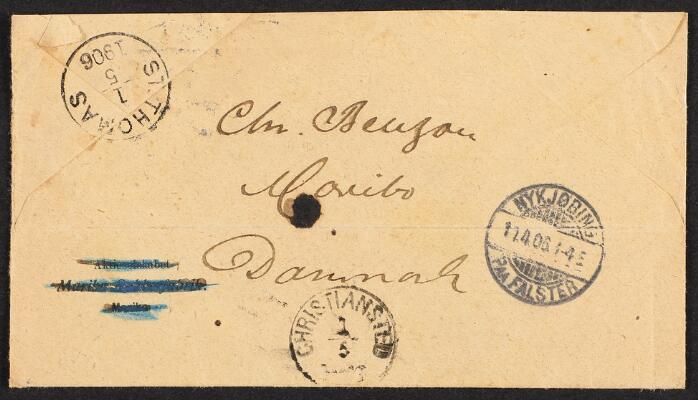 ST. THOMAS
1
5
1906
Chr. Benzon
Maribo
Danmark
NYKJØBING
11.4.06.1-4 E
PAA FALSTER
Aktieselskabet
Maribo
CHRISTIANSTED
1
5